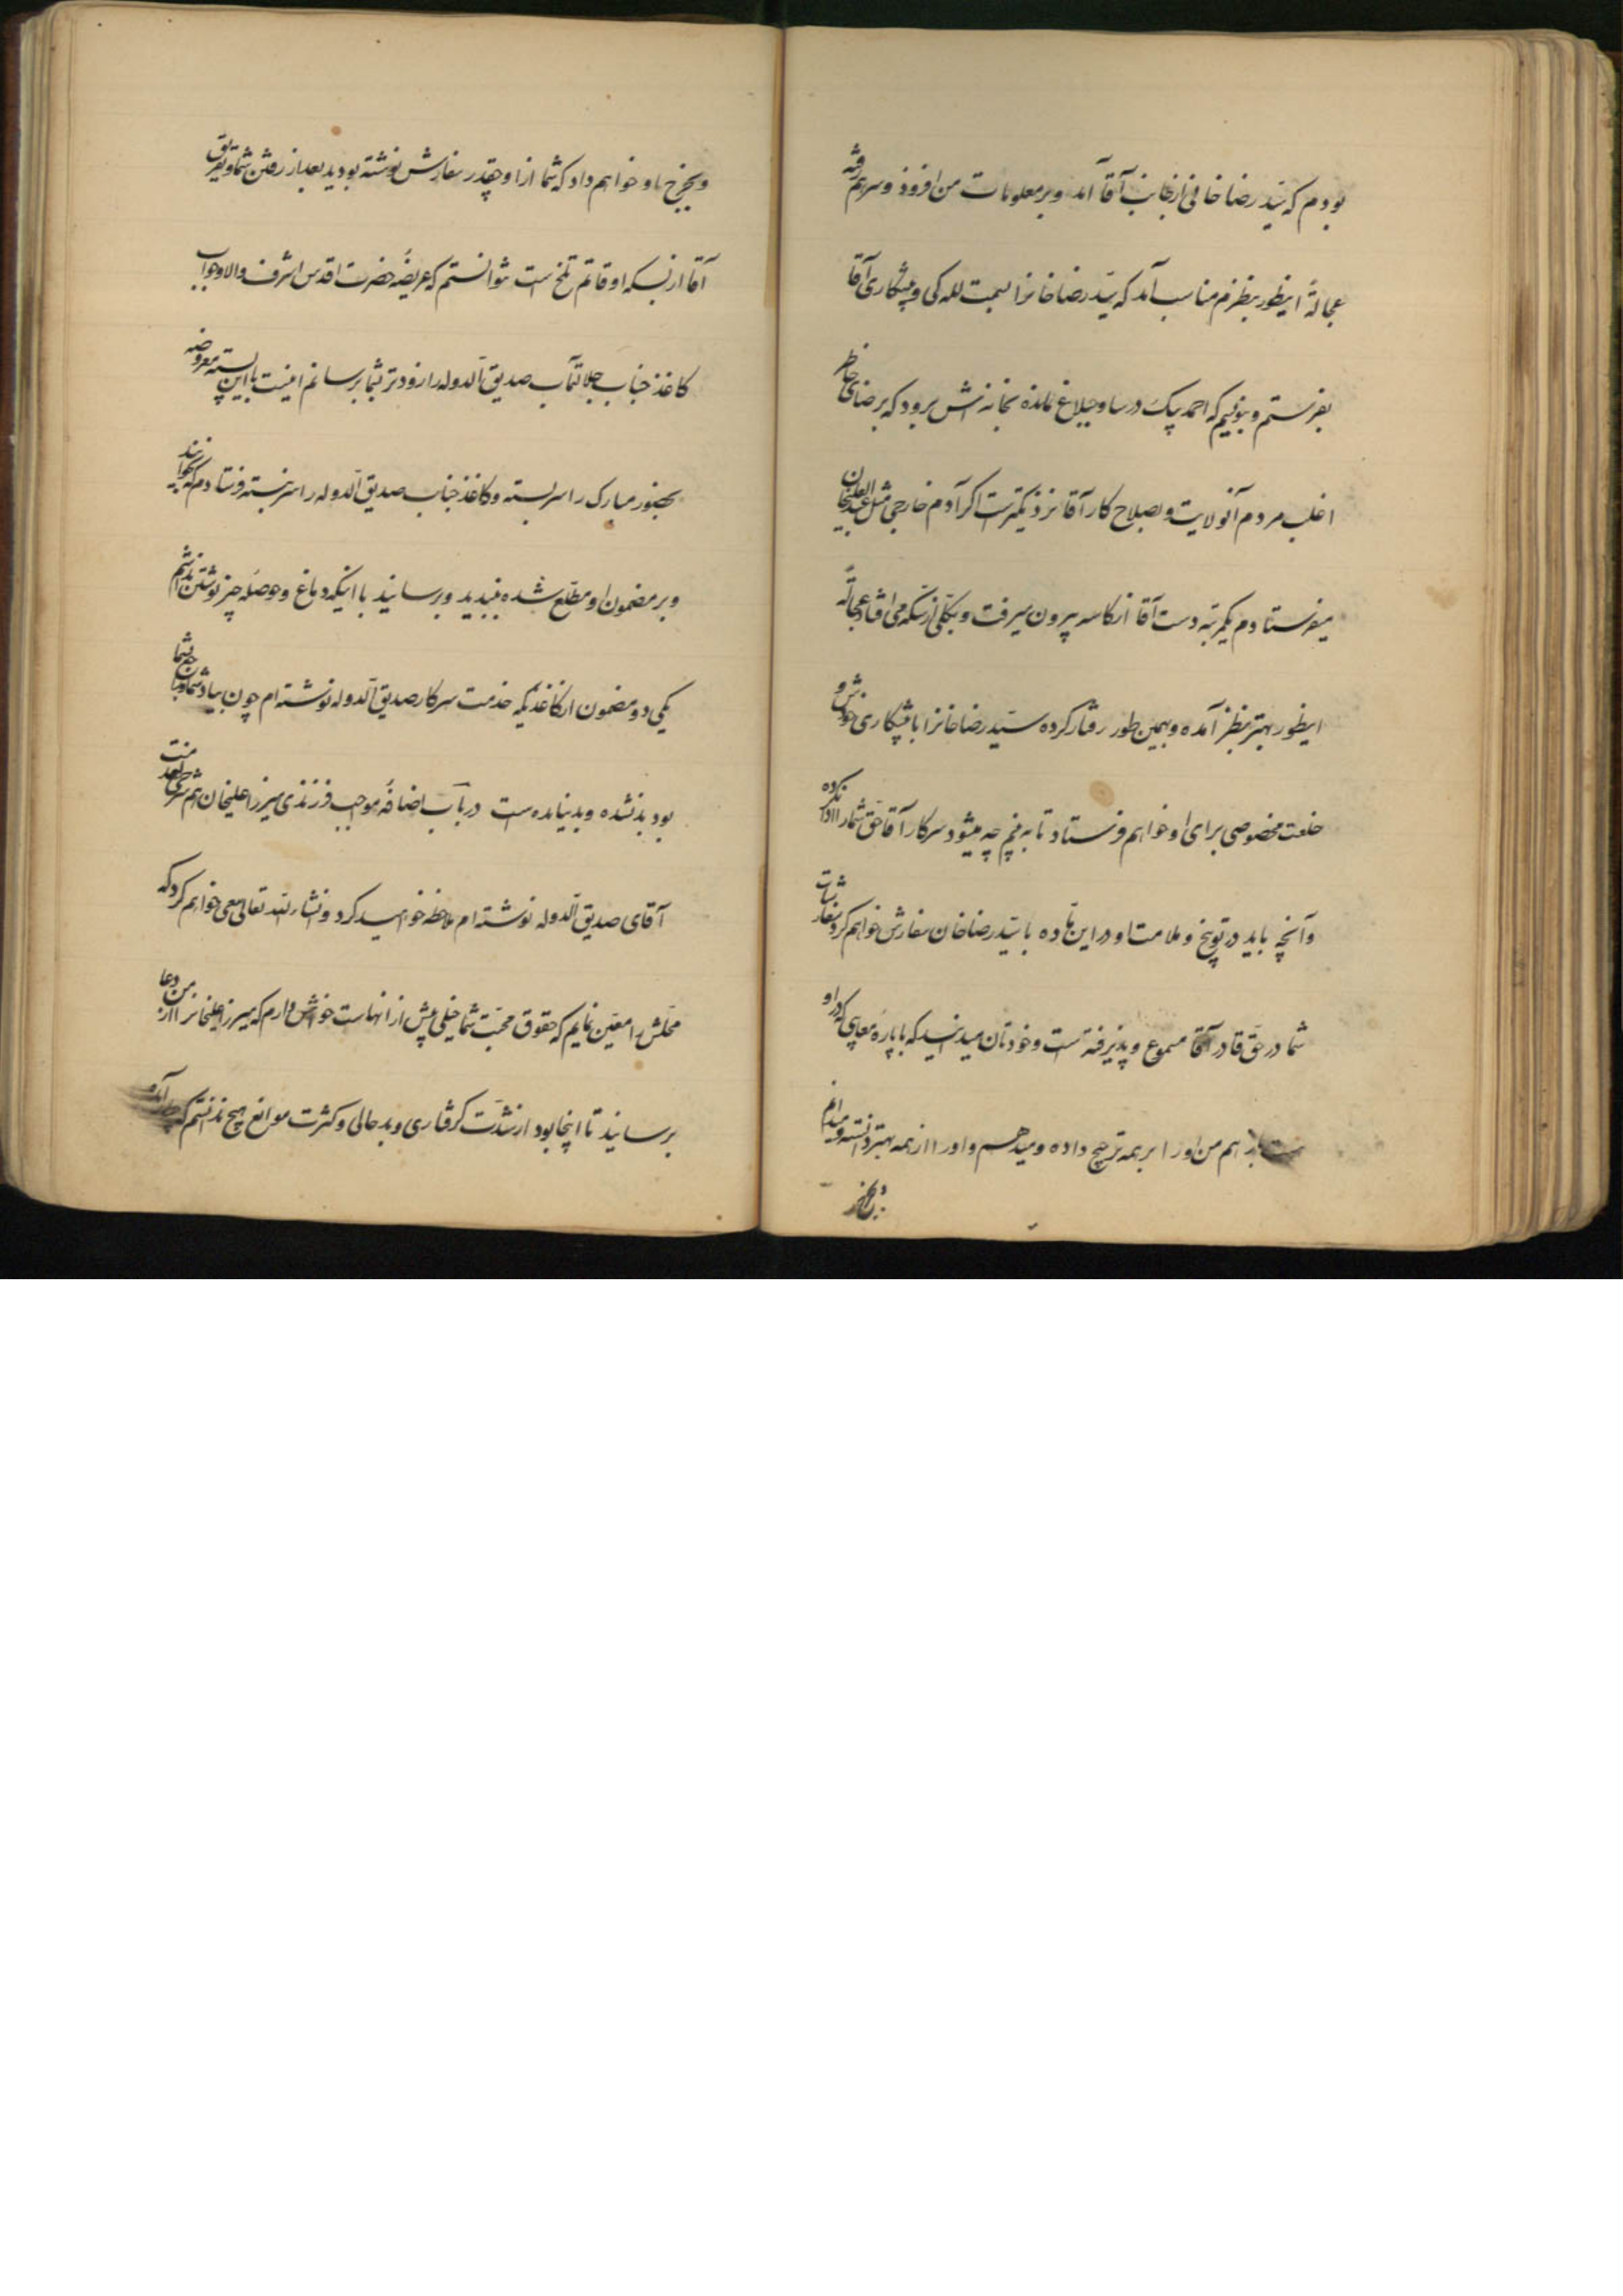 بودم که سید رضا خانی از جانب آقا آمد و بر معلومات من افزود و سرهم رفته
عجالةً اینطور بنظرم مناسب آمد که سید رضا خانرا بسمت للـه کی و پیشکاری آقا
بفرستم و بنویسم که احمد بیک در ساوجبلاغ نمانده بخانه اش برود که برضای خاطر
اغلب مردم آنولایت و بصلاح کار آقا نزدیکترست اگر آدم خارجی مثل عبدالعلیخان
میفرستادم یکمرتبه دست آقا از کاسه بیرون میرفت و بکلی از سکه می افتاد عجالةً
اینطور بهتر بنظر آمده و بهمین طور رفتار کرده سید رضا خانرا با پیشکاری خودش و
خلعت مخصوصی برای او خواهم فرستاد تا به بینم چه میشود سرکار آقا حق شما را ادا نکرده
و آنچه باید در توبیخ و ملامت او در این ماده با سید رضا خان سفارش خواهم کرد سفارشات
شما در حق قادر آقا مسموع و پذیرفته است و خودتان میدانید که با پاره معایبی که در او
هست باز هم من او را بر همه ترجیح داده و میدهم و او را از همه بهتر دانسته و میدانم
و بخرخ او خواهم داد که شما از او چقدر سفارش نوشته بودید بعد از رفتن شما و تفریق
آقا از بسکه اوقاتم تلخ است نتوانستم که عریضهٔ حضرت اقدس اشرف والا و جواب
کاغذ جناب جلالتمآب صدیق الدوله را زودتر بشما برسانم اینست با این بسته معروضه
بحضور مبارک را سربسته و کاغذ جناب صدیق الدوله را سر نبسته فرستادم که بخوانید
و بر مضمون او مطلع شده ببندید و برسانید با اینکه دماغ و حوصله چیز نوشتن نداشتم
یکی دو مضمون از کاغذیکه خدمت سرکار صدیق الدوله نوشته ام چون بیاد شما و
بود بد نشده و بد نیامده است در باب اضافهٔ مواجب فرزندی میرزا علیخان هم شرحی
آقای صدیق الدوله نوشته ام ملاحظه خواهید کرد و انشاءالله تعالی سعی خواهم کرد که
محلش را معین نمایم که حقوق محبت شما خیلی بیش از اینهاست خواهش دارم که میرزا علیخانرا از من دعا
برسانید تا اینجا بود از شدت گرفتاری و بد حالی و کثرت موانع هیچ ندانستم که